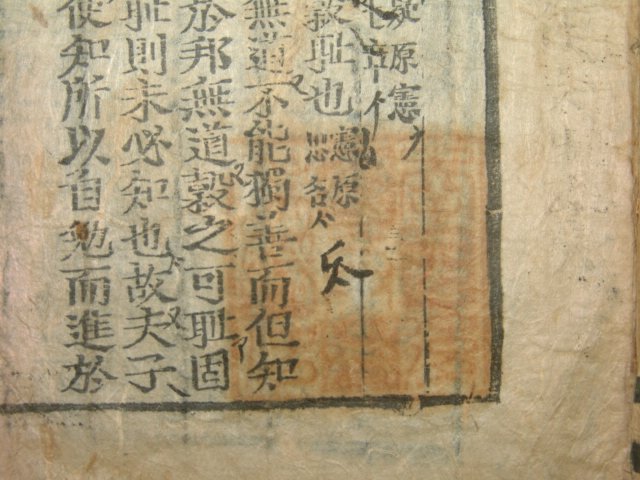 疑原憲
章
穀耻也憲原
思名
無道不能獨善而但知
於邦無道穀之可耻固
耻則未必知也故夫子
使知所以自勉而進於